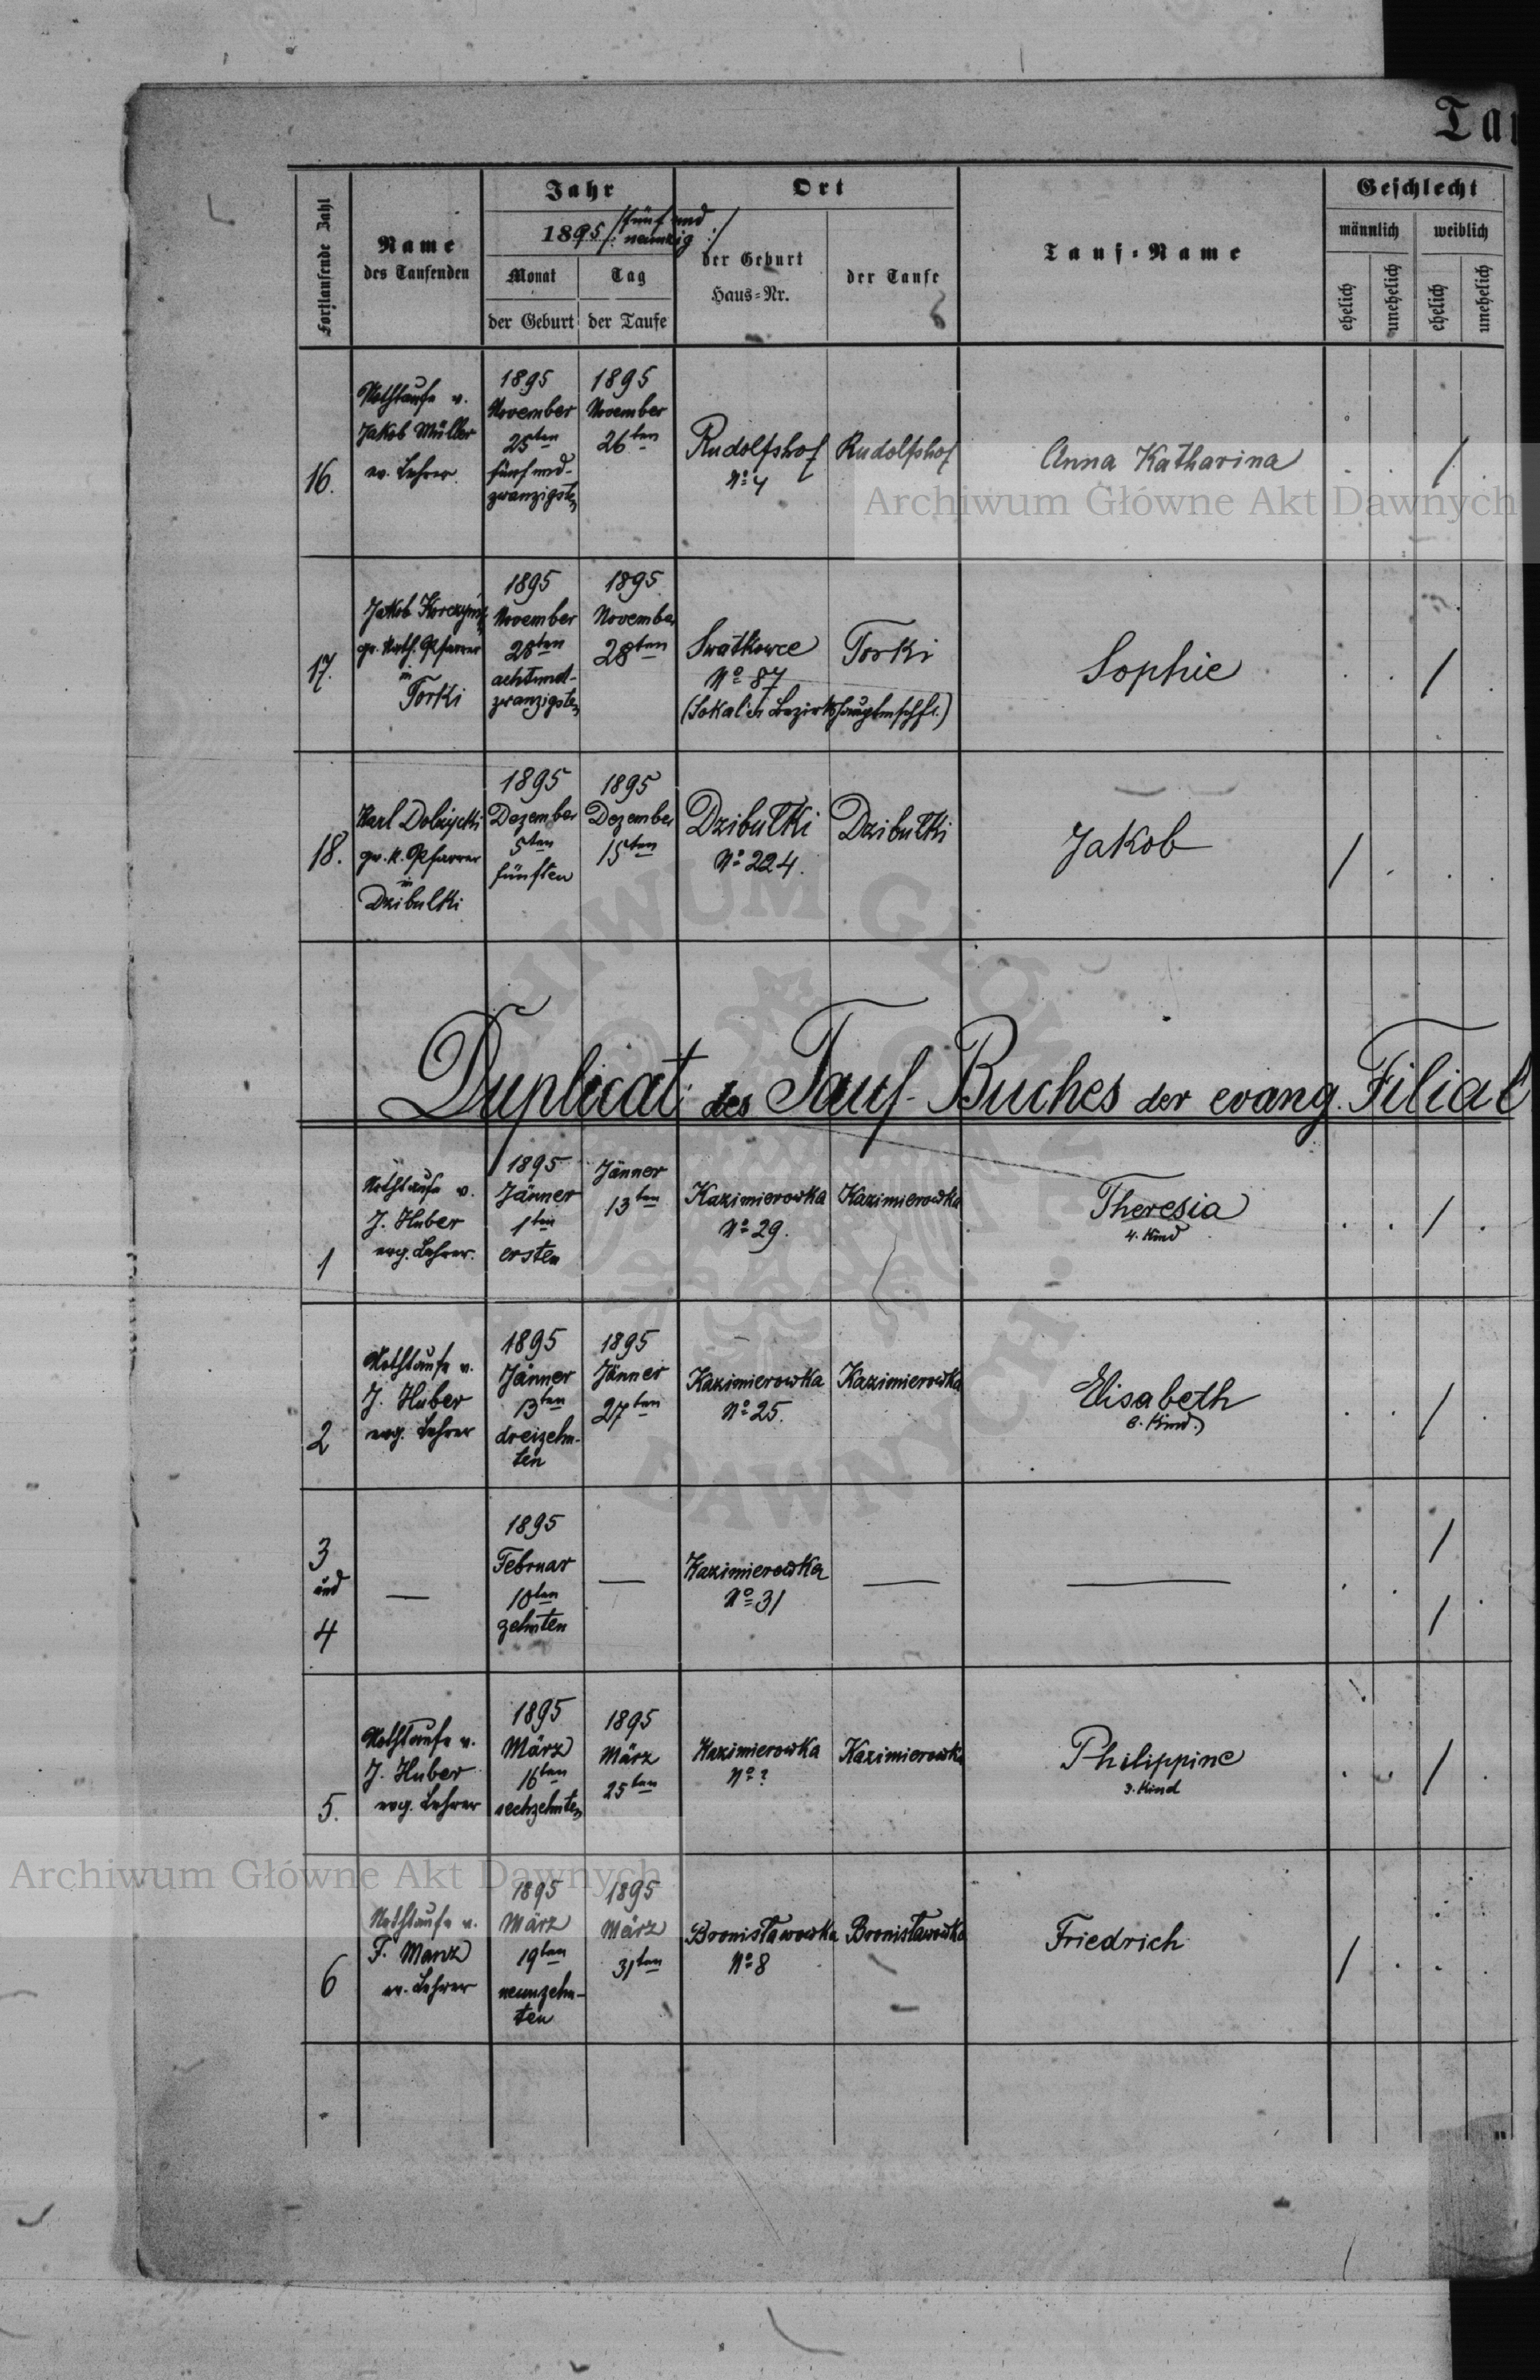 Tau
Fortlaufende Zahl
Name
des Taufenden
Jahr
1895 /: fünf und
neunzig :/
Monat
Tag
der Geburt
der Taufe
Ort
der Geburt
Haus-Nr.
der Taufe
Tauf-Name
Geschlecht
männlich
weiblich
ehelich
unehelich
ehelich
unehelich
16.
Nothtaufe v.
Jakob Müller
ev. Lehrer.
1895
November
25ten
fünf und-
zwanzigsten
1895
November
26ten
Rudolfshof
No 4
Rudolfshof
Anna Katharina
Archiwum Główne Akt Dawnych
17.
Jakob
gr. kath. Pfarrer
in
Torki
1895
November
28ten
achtund-
zwanzigsten
1895
November
28ten
Swatkowce
No 87
(Sokal'er Bezirkshauptmschft.)
Torki
Sophie
18.
Karl Dolżycki
gr. k. Pfarrer
in
Dzibulki
1895
Dezember
5ten
fünften
1895
Dezember
15ten
Dzibulki
No 224.
Dzibulki
Jakob
Duplicat des Tauf-Buches der evang. Filial
1
Nothtaufe v.
J. Huber
evg. Lehrer.
1895
Jänner
1ten
ersten
Jänner
13ten
Kazimierowka
No 29.
Kazimierowka
Theresia
4. Kind
2
Nothtaufe v.
J. Huber
evg. Lehrer
1895
Jänner
13ten
dreizehn-
ten
1895
Jänner
27ten
Kazimierowka
No 25.
Kazimierowka
Elisabeth
6. Kind.)
3
und
4
—
1895
Februar
10ten
zehnten
—
Kazimierowka
No 31
—
—
5.
Nothtaufe v.
J. Huber
evg. Lehrer
1895
März
16ten
sechzehnten
1895
März
25ten
Kazimierowka
No ?
Kazimierowka
Philippine
3. Kind
Archiwum Główne Akt Dawnych
6
Nothtaufe v.
F. Manz
ev. Lehrer
1895
März
19ten
neunzehn-
ten
1895
März
31ten
Bronisławowka
No 8
Bronisławowka
Friedrich